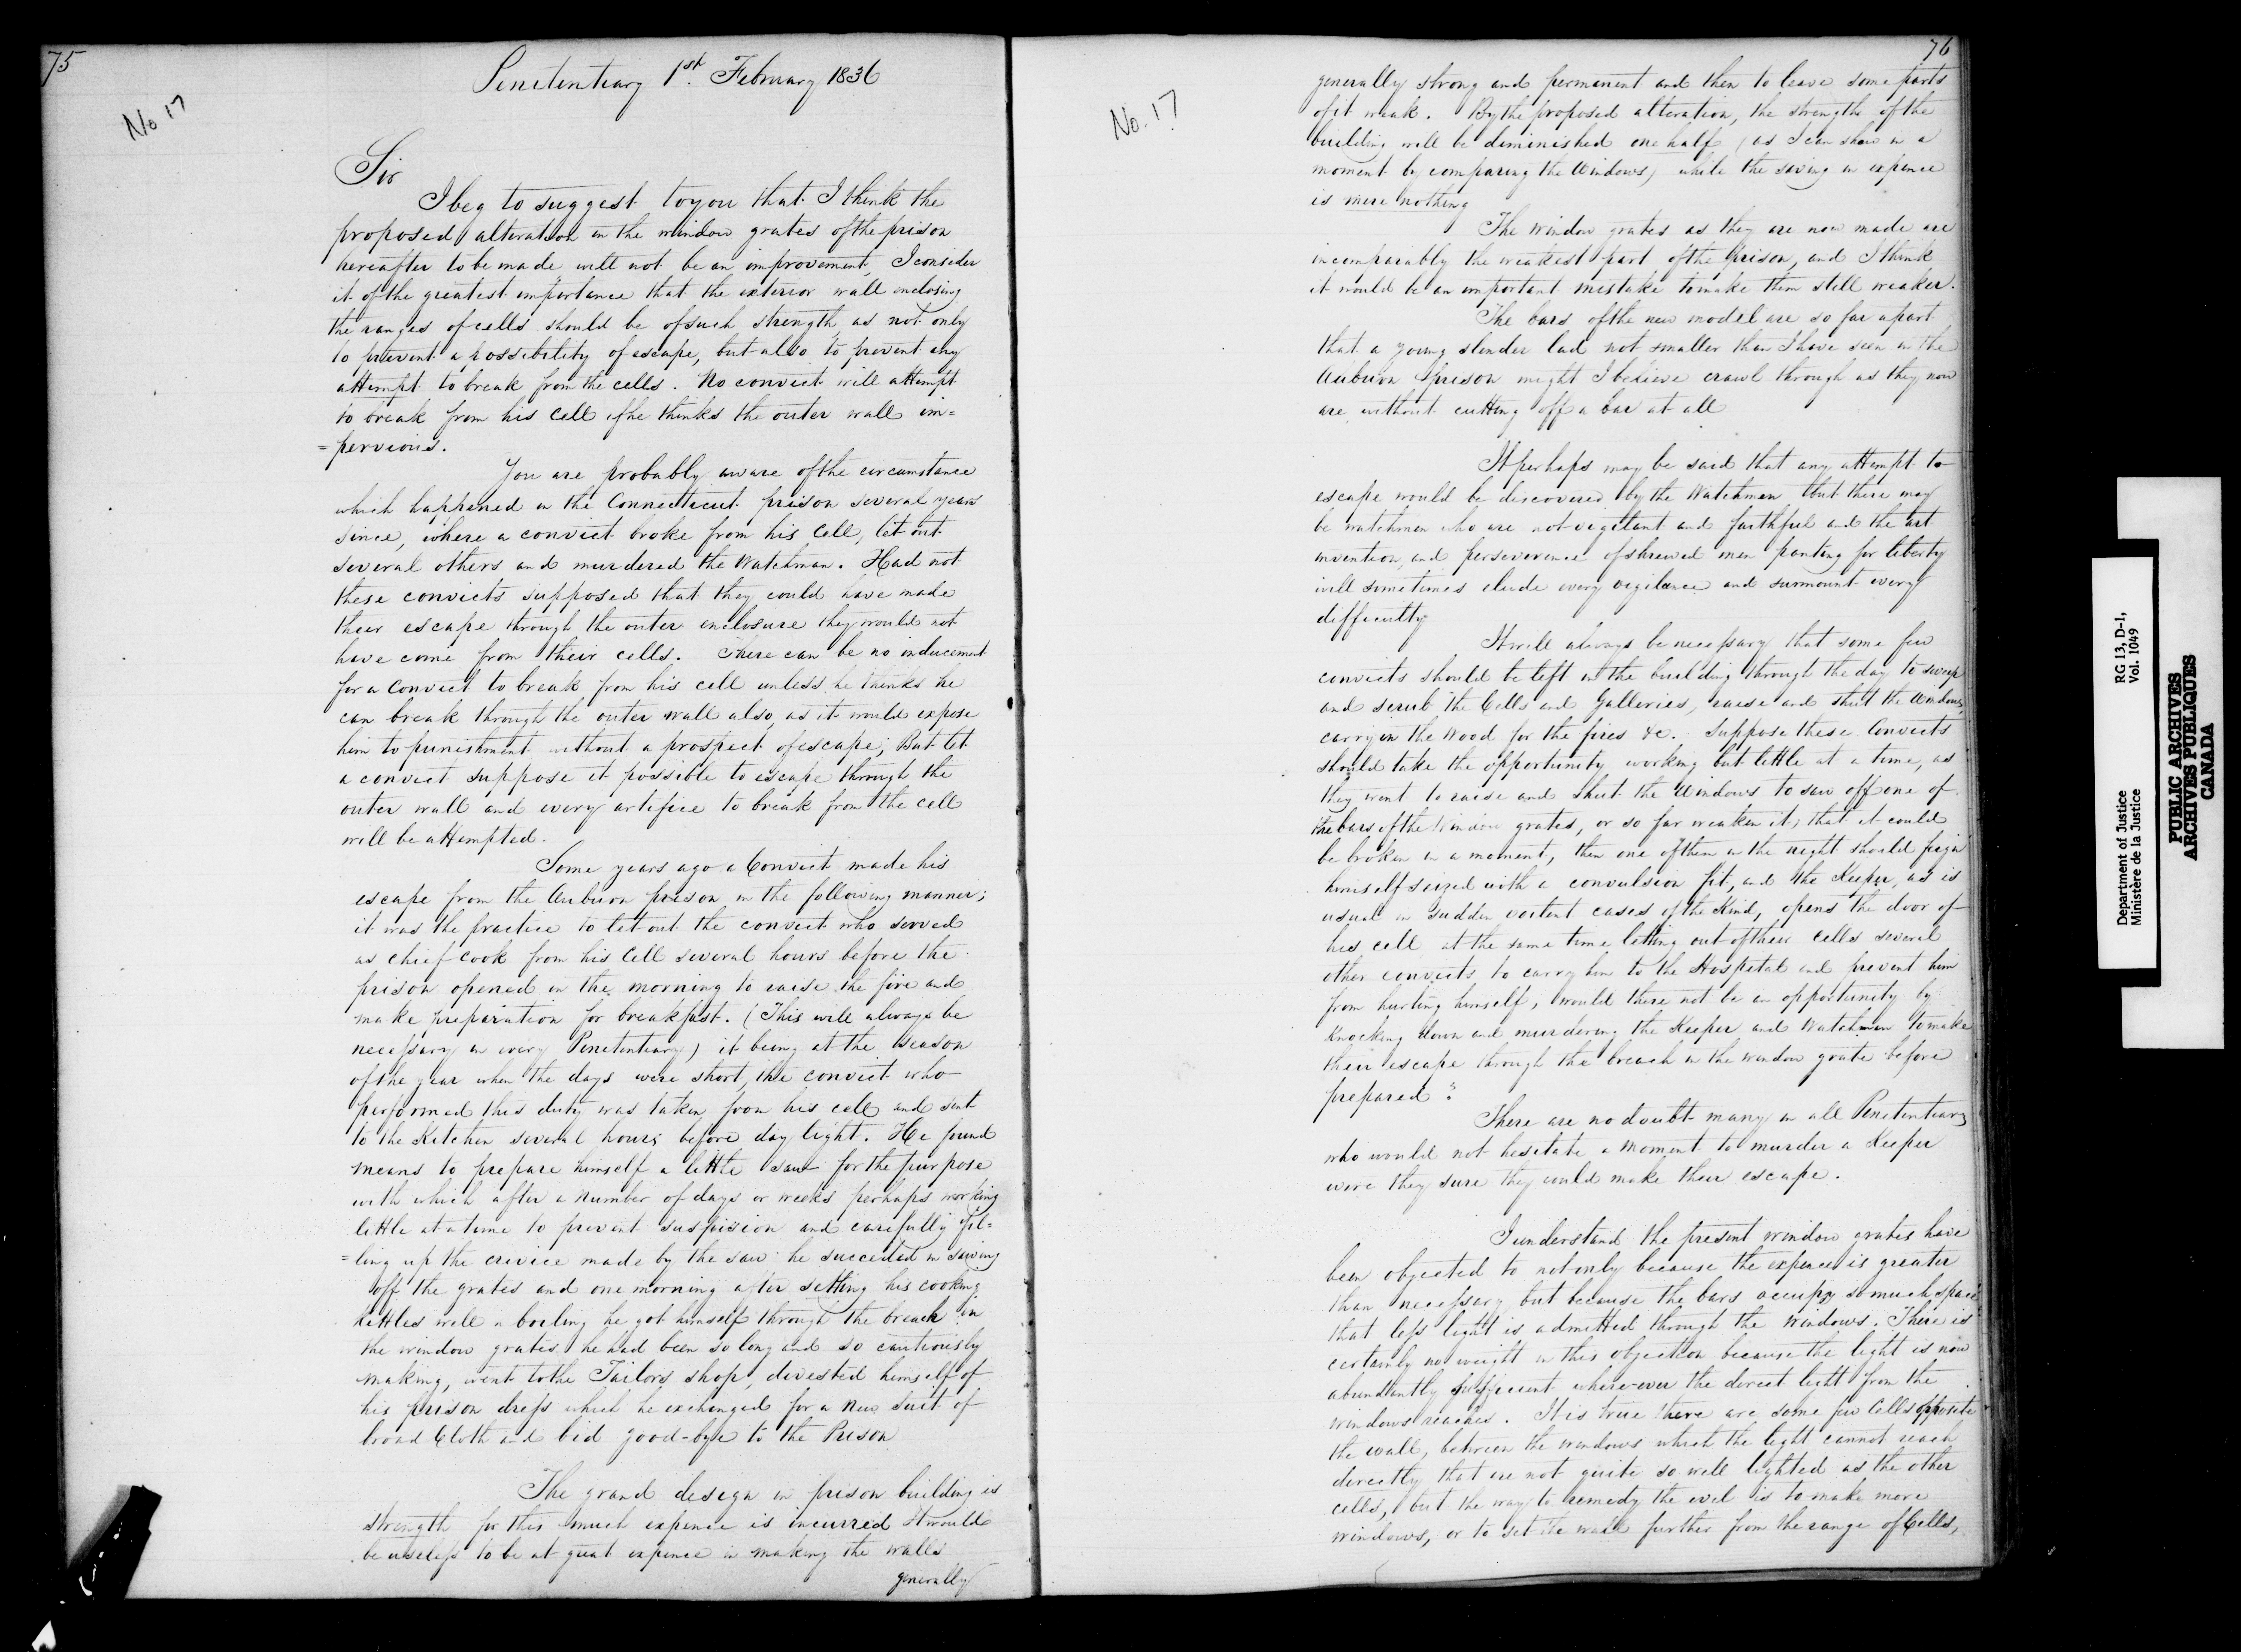 75
No 17
Penitentiary 1st. February 1836
Sir
I beg to suggest to you that I think the
proposed alteration in the window grates of the prison
hereafter to be made will not be an improvement, I consider
it of the greatest importance that the exterior wall enclosing
the ranges of cells should be of such strength as not only
to prevent a possibility of escape, but also to prevent any
attempt to break from the cells. No convict will attempt
to break from his Cell if he thinks the outer wall im=
=pervious.
You are probably aware of the circumstance
which happened in the Connecticut prison several years
since, where a convict broke from his Cell, let out
several others and murdered the Watchman. Had not
these convicts supposed that they could have made
their escape through the outer enclosure they would not
have come from their cells. There can be no inducement
for a Convict to break from his cell unless he thinks he
can break through the outer wall also, as it would expose
him to punishment without a prospect of escape; But let
a convict suppose it possible to escape through the
outer wall and every artifice to break from the cell
will be attempted.
Some years ago a Convict made his
escape from the Auburn prison in the following manner;
it was the practice to let out the convict who served
as chief cook from his Cell several hours before the
prison opened in the morning to raise the fire and
make preparation for breakfast. (This will always be
necessary in every Penitentiary) it being at the season
of the year when the days were short, the convict who
performed this duty was taken from his cell and sent
to the Kitchen several hours before day light. He found
means to prepare himself a little saw for the purpose
with which after a number of days or weeks perhaps working
little at a time to prevent suspision and carefully fil=
=ling up the crevice made by the saw he succeeded in sawing
off the grates and one morning after setting his cooking
kettles well a boiling he got himself through the breach in
the window grates he had been so long and so cautiously
making, went to the Tailors shop, divested himself of
his prison dress which he exchanged for a new suit of
broad Cloth and bid good-bye to the Prison
The grand design in prison building is
strength for this much expence is incurred It would
be useless to be at great expence in making the walls
generally
76
No. 17
generally strong and permanent and then to leave some parts
of it weak. By the proposed alteration, the strength of the
building will be diminished one half (as I can shew in a
moment by comparing the Windows) while the saving in expence
is mere nothing
The Window grates as they are now made are
incomparably the weakest part of the prison, and I think
it would be an important mistake to make them still weaker.
The bars of the new model are so far apart
that a young slender lad not smaller than I have seen in the
Auburn prison might I believe crawl through as they now
are without cutting off a bar at all
It perhaps may be said that any attempt to
escape would be discovered by the Watchmen but there may
be watchmen who are not vigilant and faithful and the art
invention and perseverence of shrewd men panting for liberty
will sometimes elude every vigilance and surmount every
difficulty
It will always be necessary that some few
convicts should be left in the building through the day to sweep
and scrub the Cells and Galleries, raise and shut the Windows,
carry in the Wood for the fires &c. Suppose these Convicts
should take the opportunity working but little at a time, as
they went to raise and shut the Windows to saw off one of
the bars of the Window grates, or so far weaken it, that it could
be broken in a moment, then one of them in the night should feign
himself seized with a convulsion fit, and the Keeper, as is
usual in sudden violent cases of the Kind, opens the door of
his cell at the same time letting out of their cells several
other convicts to carry him to the Hospital and prevent him
from hurting himself, would there not be an opportunity by
Knocking down and murdering the Keeper and Watchman to make
their escape through the breach in the window grate before
prepared?
There are no doubt many in all Penitentiarys
who would not hesitate a moment to murder a Keeper
were they sure they could make their escape.
I understand the present window grates have
been objected to not only because the expence is greater
than necessary but because the bars occupy so much space
that less light is admitted through the Windows. There is
certainly no weight in this objection because the light is now
abundantly sufficient where-ever the direct light from the
windows reaches. It is true there are some few Cells opposite
the wall, between the windows which the light cannot reach
directly that are not quite so well lighted as the other
cells, but the way to remedy the evil is to make more
windows, or to set the wall further from the range of Cells,
Department of Justice
Ministère de la Justice
RG 13, D-1,
Vol. 1049
PUBLIC ARCHIVES
ARCHIVES PUBLIQUES
CANADA